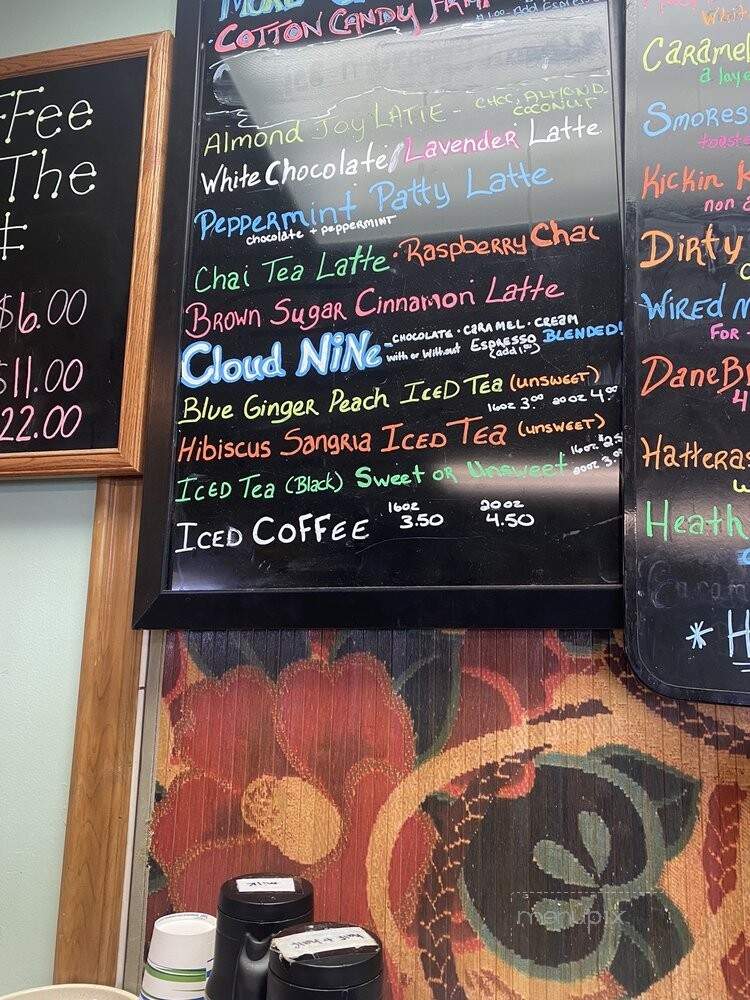 ffee
The
$6.00
$11.00
22.00
COTTON CANDY
Almond Joy LATTE - CHOC, ALMOND,
COCONUT
White Chocolate/Lavender Latte
Peppermint Patty Latte
chocolate + peppermint
Chai Tea Latte · Raspberry Chai
Brown Sugar Cinnamon Latte
Cloud NiNe - CHOCOLATE · CARAMEL · CREAM
with or without Espresso BLENDED!
(add 1.00)
Blue Ginger Peach ICED Tea (unsweet)
16oz 3.00 20oz 4.00
Hibiscus Sangria ICED Tea (unsweet)
16oz $2.5
ICED Tea (Black) Sweet or Unsweet 20oz 3.0
16oz 20oz
ICED COFFEE 3.50 4.50
Caramel
a laye
Smores
toaste
Kickin
non a
Dirty
Wired
For
DaneB
Hatteras
Heath
Caram
* H
milk
half & half
menupix